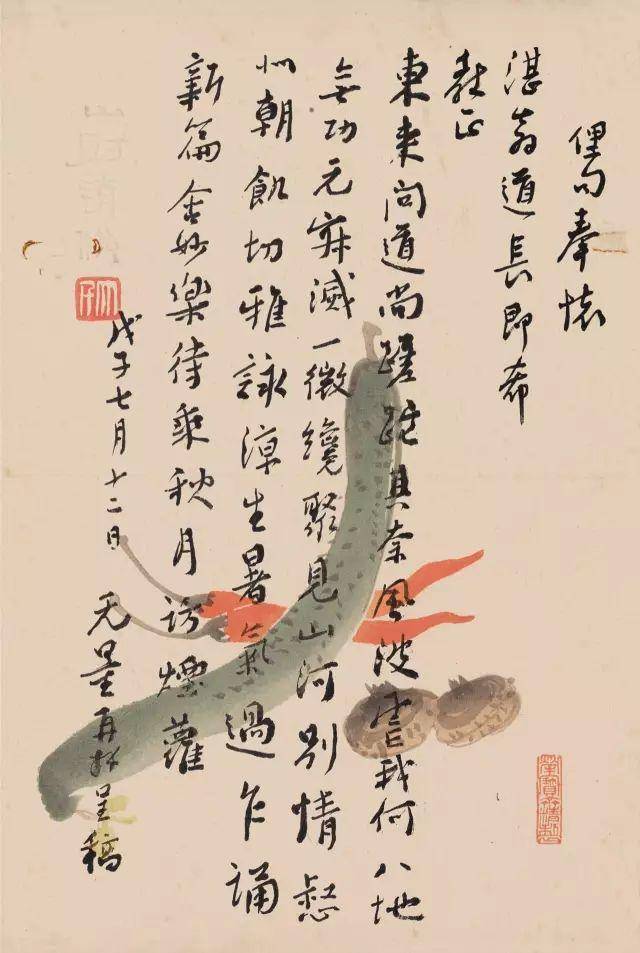 俚句奉懷
湛翁道長即希
教正
東来问道尚蹉跎其奈風波害我何八地
無功元寂滅一微纔聚見山河別情惄
似朝飢切雅詠涼生暑氣過乍誦
新篇含妙樂待乘秋月访煙蘿
戊子七月十二日 无量再拜呈稿
榮寶齋製